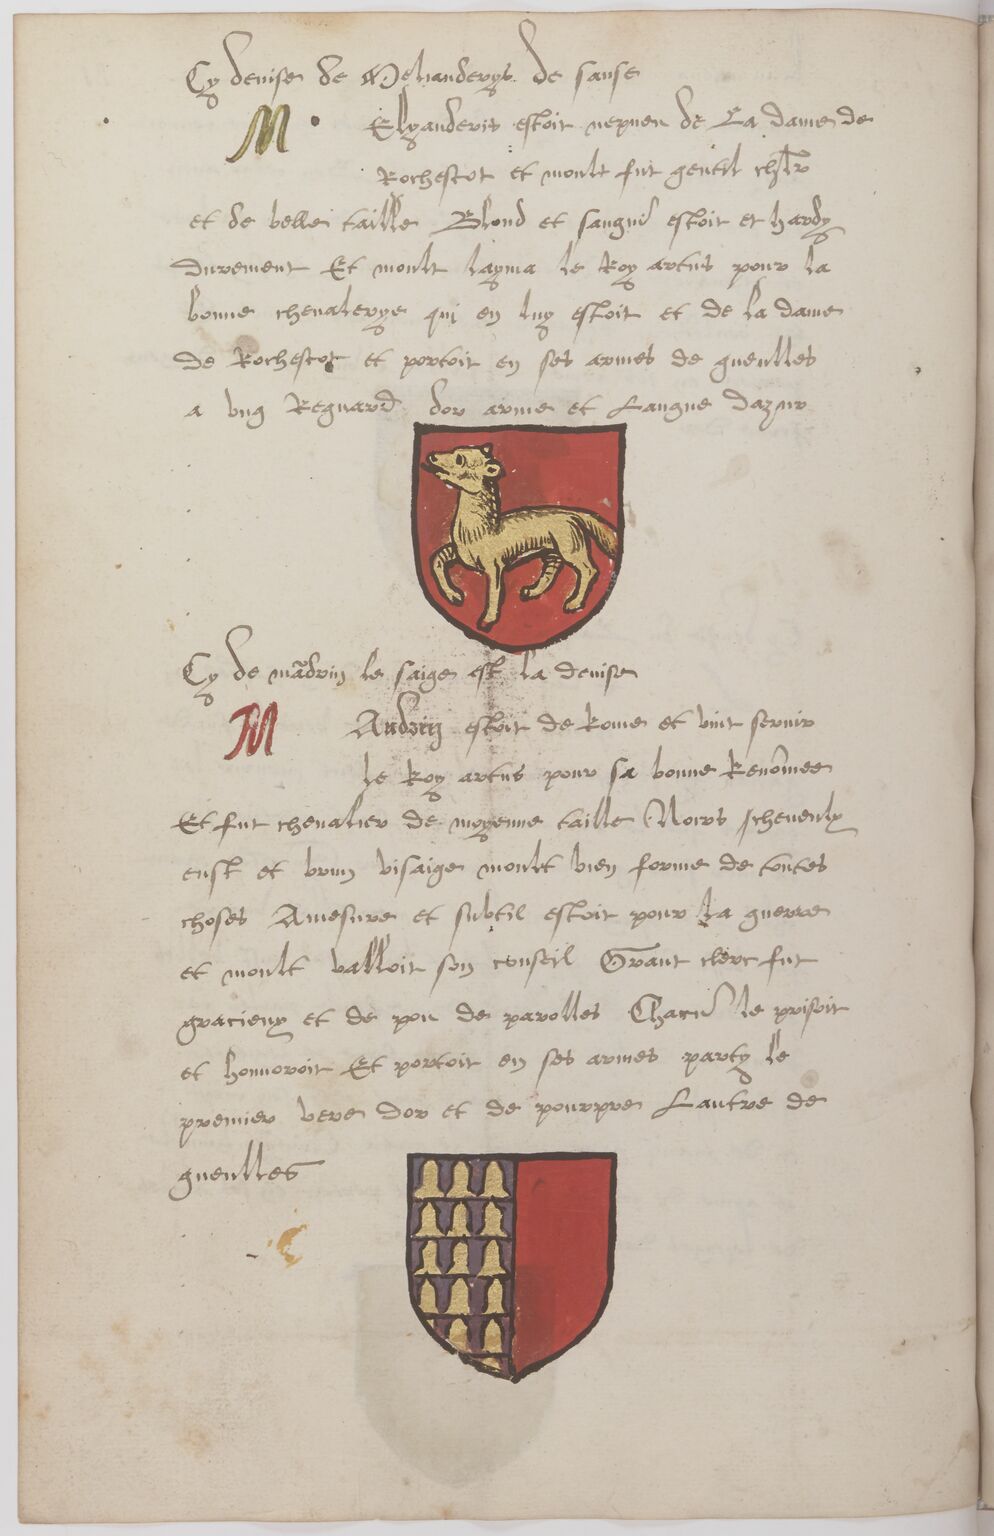 Cy devise de Melianderys de sanse
M Elyanderis estoit nepueu de La dame de
Rochescot et moult fut gentil chlr
et de belle taille Blond et sanguī estoit et hardy
durement Et moult layma le Roy artus pour la
bonne chevalerye qui en luy estoit et de la dame
de Rochescot et portoit en ses armes de gueulles
a ung Regnard dor arme et Langue dazur
Cy de mādrin le saige est la devise
M Andrin estoit de Rome et vint servir
le Roy artus pour sa bonne Renōmee
Et fut chevalier de moyenne taille Noirs
eust et brun visaige moult bien forme de toutes
choses Amesure et subtil estoit pour la guerre
et moult valloit son conseil Grant clerc fut
gracieux et de pou de parolles Chacū le prisoit
et honnoroit Et portoit en ses armes party le
premier vere dor et de pourpre Lautre de
gueulles